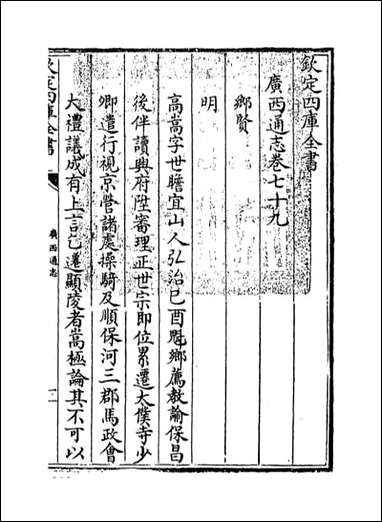 欽定四庫全書
廣西通志卷七十九
鄉賢
明
高嵩字世瞻宜山人弘治已酉魁鄉薦教諭保昌
後伴讀興府陞審理正世宗即位累遷太僕寺少
卿遣行視京營諸處操騎及順保河三郡馬政會
大禮議成有上言乞遷顯陵者嵩極論其不可以
欽定四庫全書
廣西通志